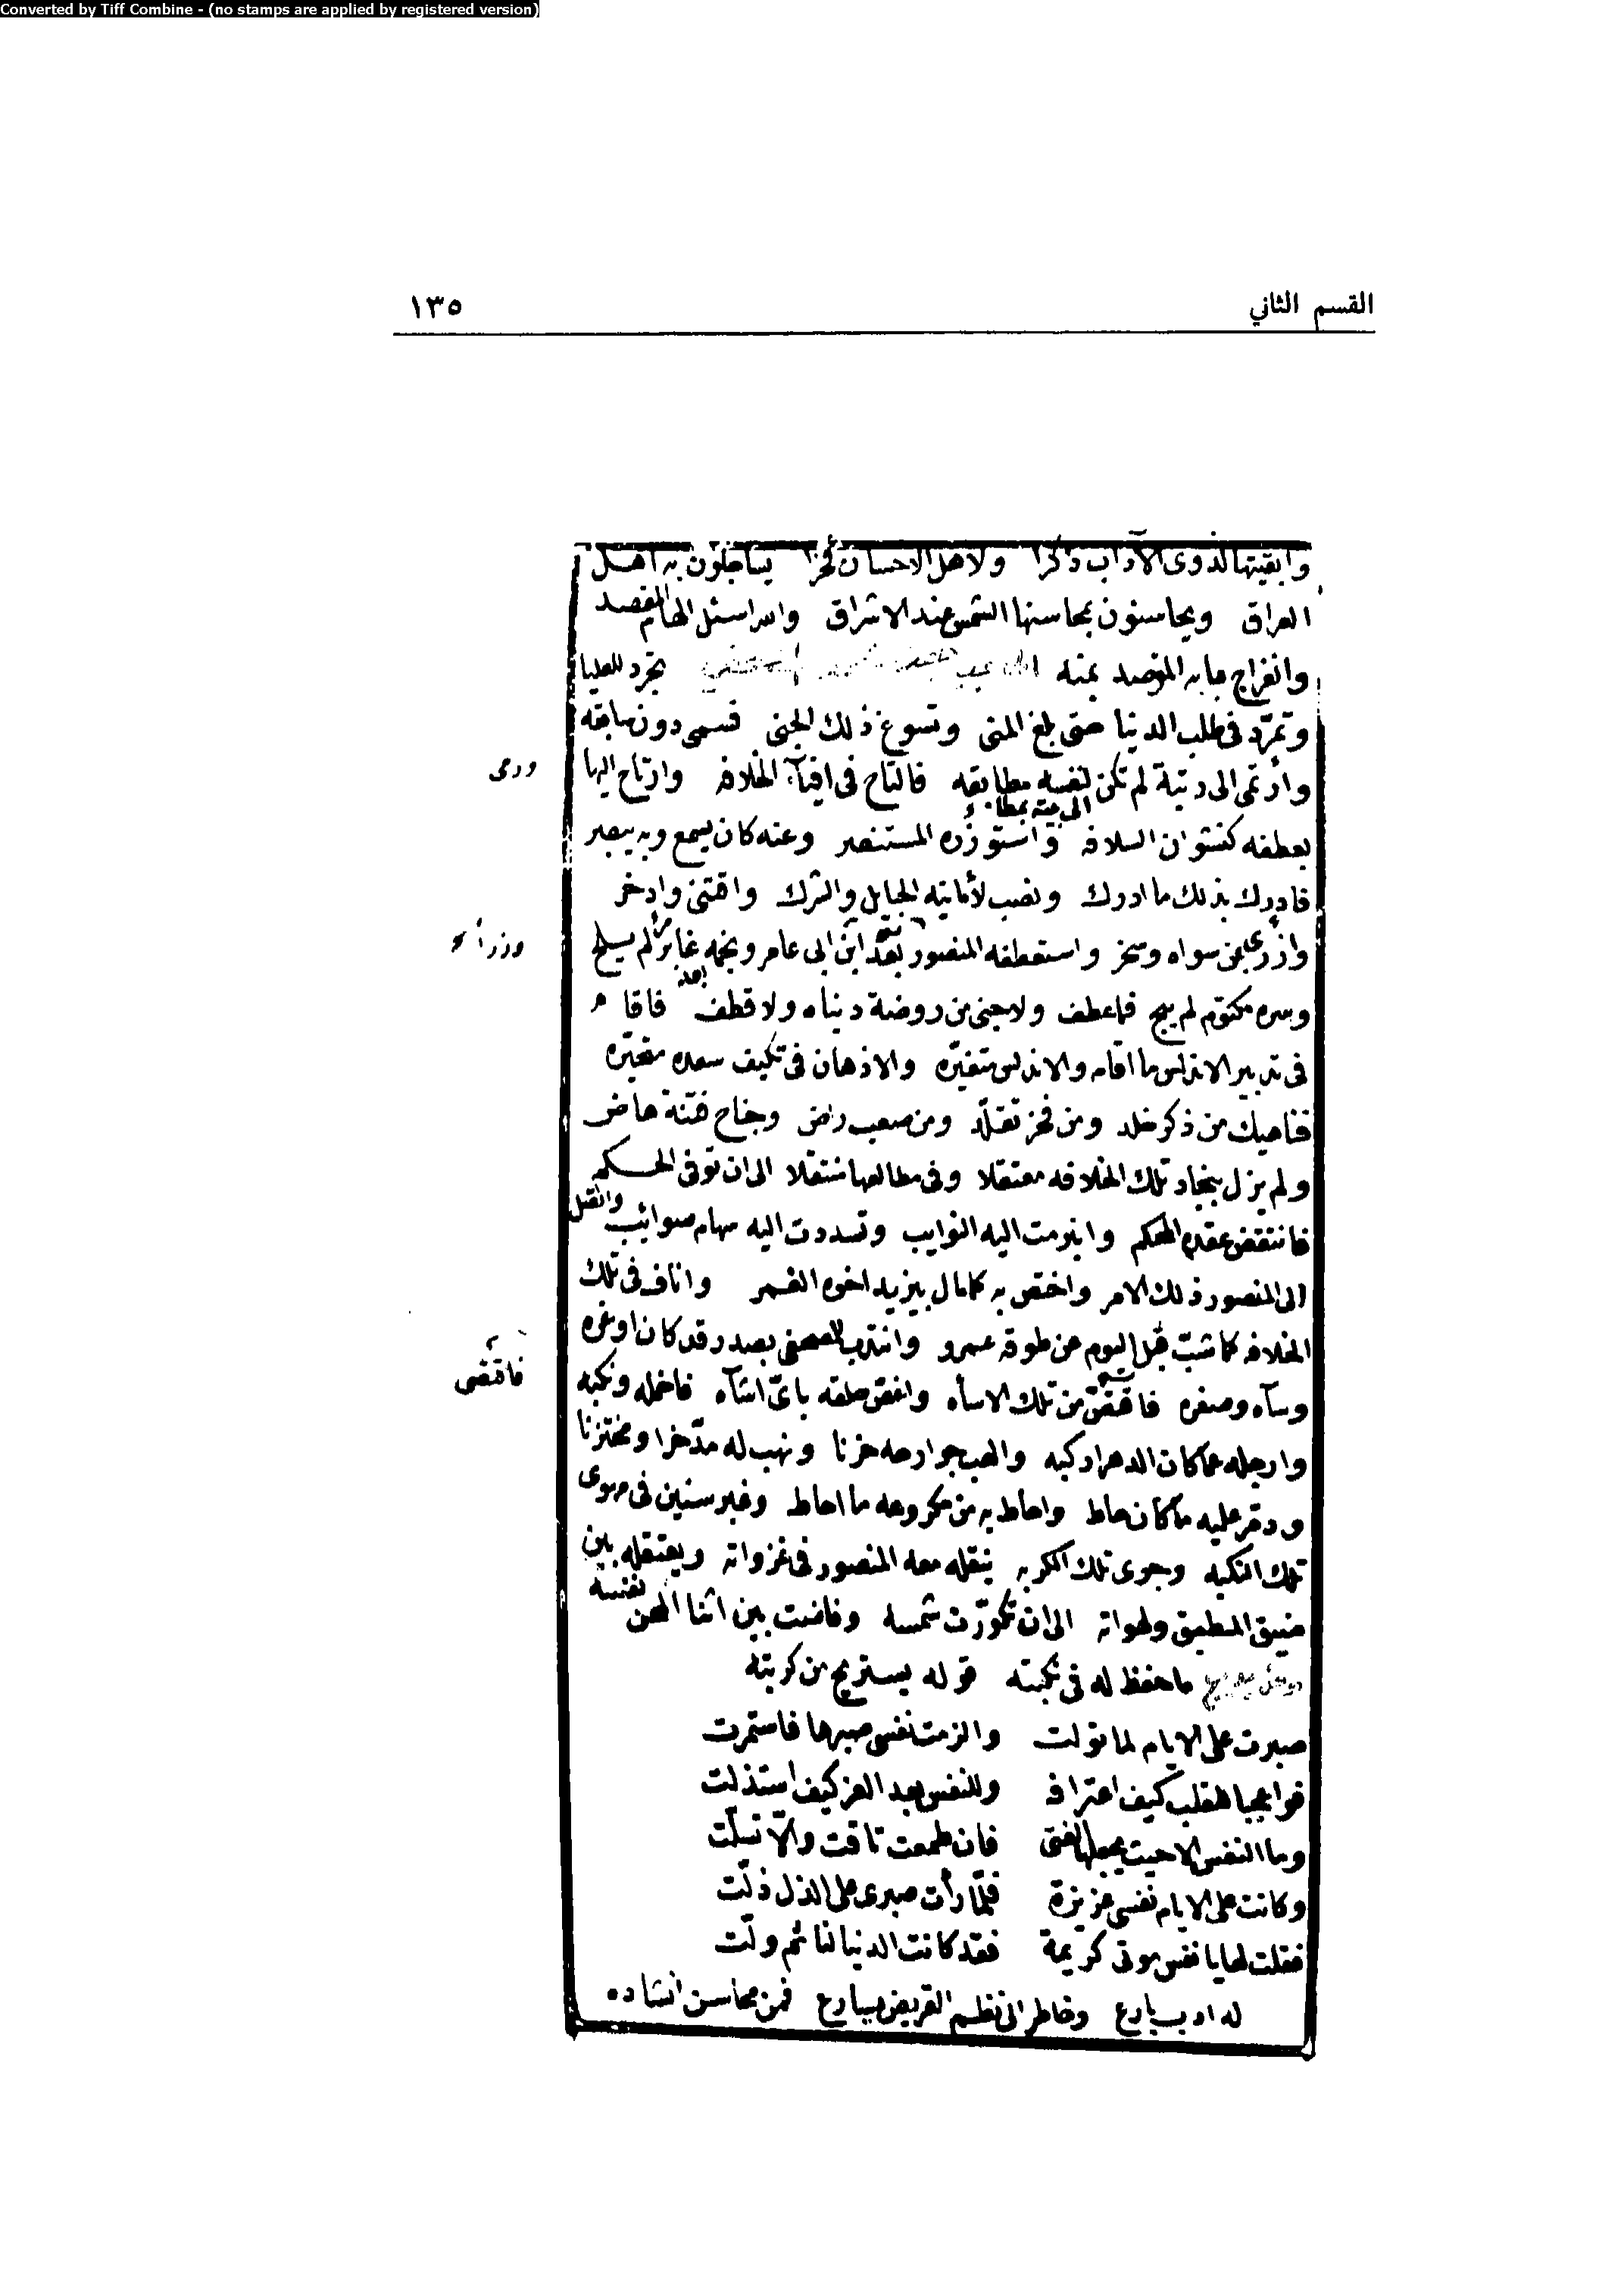 Converted by Tiff Combine - (no stamps are applied by registered version)
القسم الثاني
١٣٥
وابقيتها لذوى الآداب ذكرا ولاهل الاحسان فخرا يساجلون به اهل
العراق ويحاسنون بمحاسنها الشمس عند الاشراق والله اسئل الهام المقصد
وانفراج بابه الموصد بمنه تجرد للعليا
وتمرّد فى طلب الدنيا حتى بلغ المنى وتسوغ ذلك الجنى فسمى دون سابقه
وارتمى الى رتبة لم تكن لنفسه مطابقه فالتاح فى افيآء الخلافه وارتاح اليها
ورمى
بعطفه كنشوان السلافه واستوزره المستنصر وعنه كان يسمع وبه يبصر
فادرك بذلك ما ادرك ونصب لأمانيه الحبايل والشرك واقتنى وادخر
وازرى بمن سواه وسخر واستعطفه المنصور بعد ابن ابى عامر ونجمه غاير لم يلح
وسره مكتوم لم يبح فما عطف ولا جنى من روضة دنياه ولا قطف فاقام
فى تدبير الاندلس ما اقام والاندلس متغيره والاذهان فى تكيف سعده متحيره
فناهيك من ذكر خلد ومن فخر تقلد ومن صعب راض وجناح فتنة هاض
ولم يزل بنجاد تلك الخلافه معتقلا وفى مطالعها منتقلا الى ان توفى الحكم
فانتقض عقده المحكم وانبرمت اليه النوايب وتسددت اليه سهام صوائب وانتقل
الى المنصور ذلك الامر واختص به كما مال بيزيد اخوه الغمر واناف فى تلك
الخلافه كما شبّ قبل اليوم عن طوقه عمرو وانتدب للمصحفى بصدر قد كان اوغره
وسآه وصغره فاقتص من تلك الاساه واغص حلقه باىّ اشآه فاخمله ونكبه
فاقتضى
وارجله عما كان الدهر اركبه والهب جوارحه حزنا ونهب له مدّخرا ومختزنا
ودمّر عليه ما كان حاط واحاط به من مكروهه ما احاط وغبر سنين فى مهوى
تلك النكبه وجوى تلك الكربه ينقله معه المنصور فى غزواته ويعتقله بين
ضيق المطبق ولهواته الى ان تكوّرت شمسه وفاضت بين اثنا المحن نفسه
ما حفظ له فى نكبته قوله يستريح من كربته
صبرت على الايام لما تولت والزمت نفسى صبرها فاستمرت
فواعجبا للقلب كيف اعترافه وللنفس بعد العز كيف استذلت
وما النفس الا حيث يجعلها الفتى فان طمعت تاقت والّا تسلّت
وكانت على الايام نفسى عزيزة فلمّا رأت صبرى على الذل ذلّت
فقلت لها يا نفس موتى كريمة فقد كانت الدنيا لنا ثم ولّت
له ادب بارع وخاطر الى نظم القريض يسارع فمن محاسن انشاده